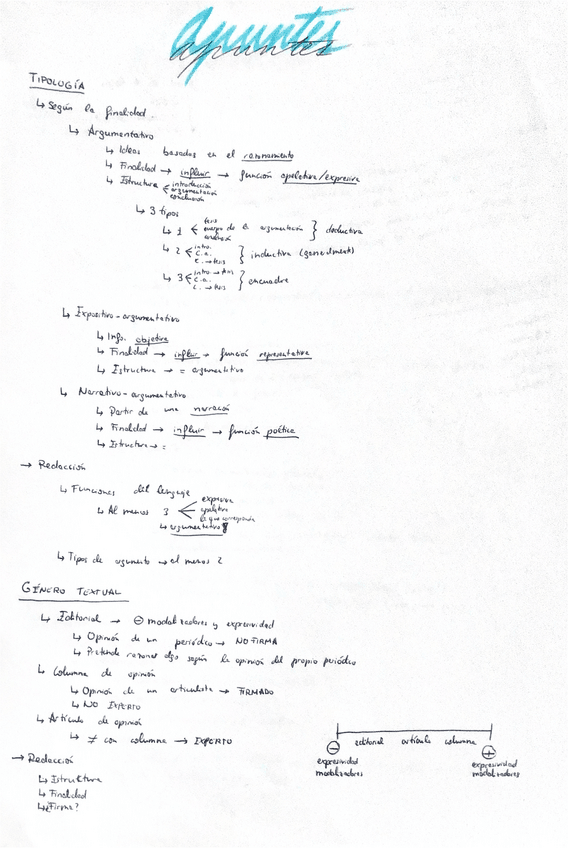 apuntes
TIPOLOGÍA
↳ Según la finalidad.
↳ Argumentativo
↳ Ideas basadas en el razonamiento
↳ Finalidad → influir → función apelativa/expresiva
↳ Estructura < introducción
argumentación
conclusión
↳ 3 tipos
↳ 1 < tesis
cuerpo de la argumentación } deductiva
↳ 2 < intro.
C.a.
C. → tesis } inductiva (generalment)
↳ 3 < intro → tesis
C.a.
C. → tesis } encuadre
↳ Expositivo-argumentativo
↳ Info. objetiva
↳ Finalidad → influir → función representativa
↳ Estructura → = argumentativo
↳ Narrativo-argumentativo
↳ Partir de una narración
↳ Finalidad → influir → función poética
↳ Estructura → =
→ Redacción
↳ Funciones del lenguaje
↳ Al menos 3 < expresiva
apelativa
la que corresponda
↳ argumentativo
↳ Tipos de argumento → al menos 2
GÉNERO TEXTUAL
↳ Editorial → ⊖ modalizadores y expresividad
↳ Opinión de un periódico → NO FIRMA
↳ Pretende razonar algo según la opinión del propio periódico
↳ Columna de opinión
↳ Opinión de un articulista → FIRMADO
↳ NO EXPERTO
↳ Artículo de opinión
↳ ≠ con columna → EXPERTO
editorial artículo columna
⊖ ⊕
expresividad expresividad
modalizadores modalizadores
→ Redacción
↳ Estructura
↳ Finalidad
↳ ¿Firma?